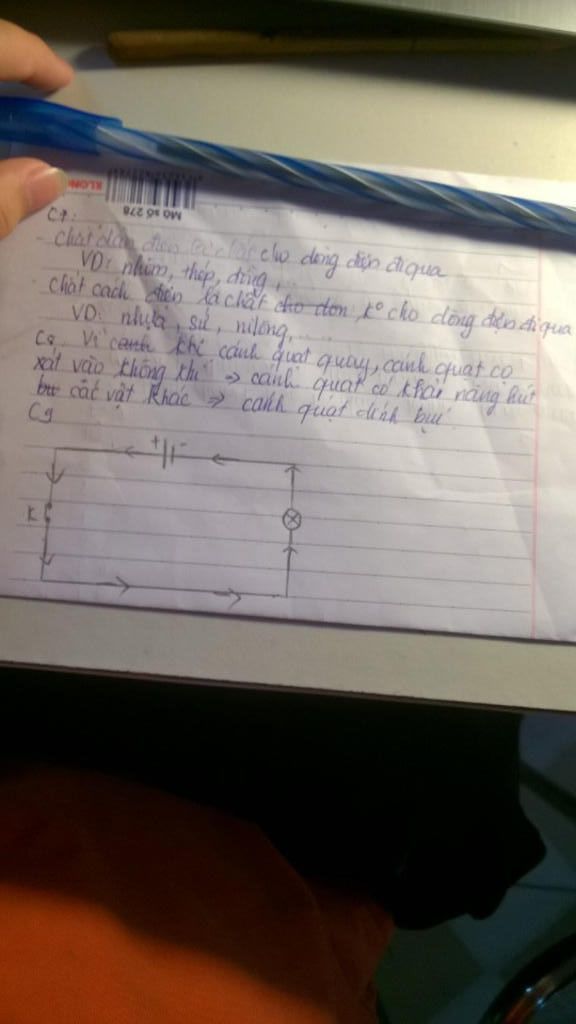 KLONG
Mã số 278
C7:
Chất dẫn điện là chất cho dòng điện đi qua
VD: nhôm, thép, đồng,...
chất cách điện là chất cho don k° cho dòng điện đi qua
VD: nhựa, sứ, nilông,...
C8 Vì canh khi cánh quạt quay, cánh quạt cọ
xát vào không khí => cánh quạt có khả năng hút
bu các vật khác => cánh quạt dính bụi.
C9
+ -
K